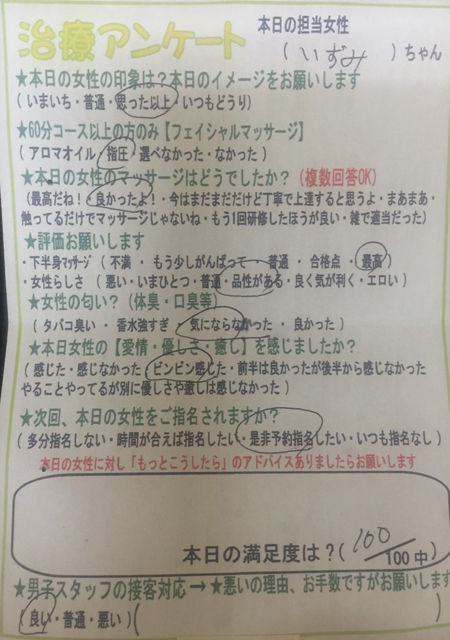 治療アンケート
本日の担当女性
( いずみ )ちゃん
★本日の女性の印象は？本日のイメージをお願いします
( いまいち・普通・思った以上・いつもどうり )
★60分コース以上の方のみ【フェイシャルマッサージ】
( アロマオイル・指圧・選べなかった・なかった )
★本日の女性のマッサージはどうでしたか？ (複数回答OK)
(最高だね！・良かったよ！・今はまだまだだけど丁寧で上達すると思うよ・まあまあ・
触ってるだけでマッサージじゃないね・もう1回研修したほうが良い・雑で適当だった)
★評価お願いします
・下半身ﾏｯｻｰｼﾞ ( 不満 ・ もう少しがんばって ・ 普通 ・ 合格点 ・ 最高 )
・女性らしさ ( 悪い・いまひとつ・普通・品性がある・良く気が利く・エロい )
★女性の匂い？ (体臭・口臭等)
( タバコ臭い ・ 香水強すぎ ・ 気にならなかった ・ 良かった )
★本日女性の【愛情・優しさ・癒し】を感じましたか？
( 感じた・感じなかった・ビンビン感じた・前半は良かったが後半から感じなかった
やることやってるが別に優しさや癒しは感じなかった )
★次回、本日の女性をご指名されますか？
( 多分指名しない・時間が合えば指名したい・是非予約指名したい・いつも指名なし )
本日の女性に対し「もっとこうしたら」のアドバイスありましたらお願いします
本日の満足度は？( 100/100中 )
★男子スタッフの接客対応 → ★悪いの理由、お手数ですがお願いします
(良い・普通・悪い) ( )